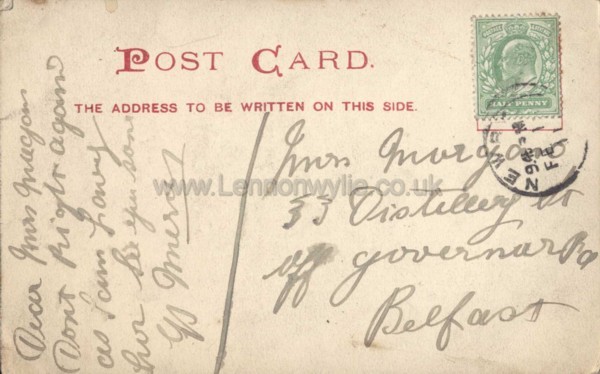 POST CARD.
THE ADDRESS TO BE WRITTEN ON THIS SIDE.
HALF PENNY
www.Lennonwylie.co.uk
Dear Mrs
Dont Right again
as I am
her
Mrs Morgan
33 Distillery St
off governar Ro
Belfast